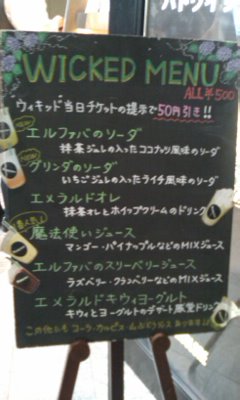 WICKED MENU
ALL ¥500
ウィキッド当日チケットの提示で50円引き!!
エルファバのソーダ
抹茶ジュレの入ったココナッツ風味のソーダ
グリンダのソーダ
いちごジュレの入ったライチ風味のソーダ
エメラルドオレ
抹茶オレとホイップクリームのドリンク
魔法使いジュース
マンゴー・パイナップルなどのMIXジュース
エルファバのスリーベリージュース
ラズベリー・クランベリーなどのMIXジュース
エメラルドキウィヨーグルト
キウィとヨーグルトのデザート感覚ドリンク
この他にもコーラ・カルピス
あります